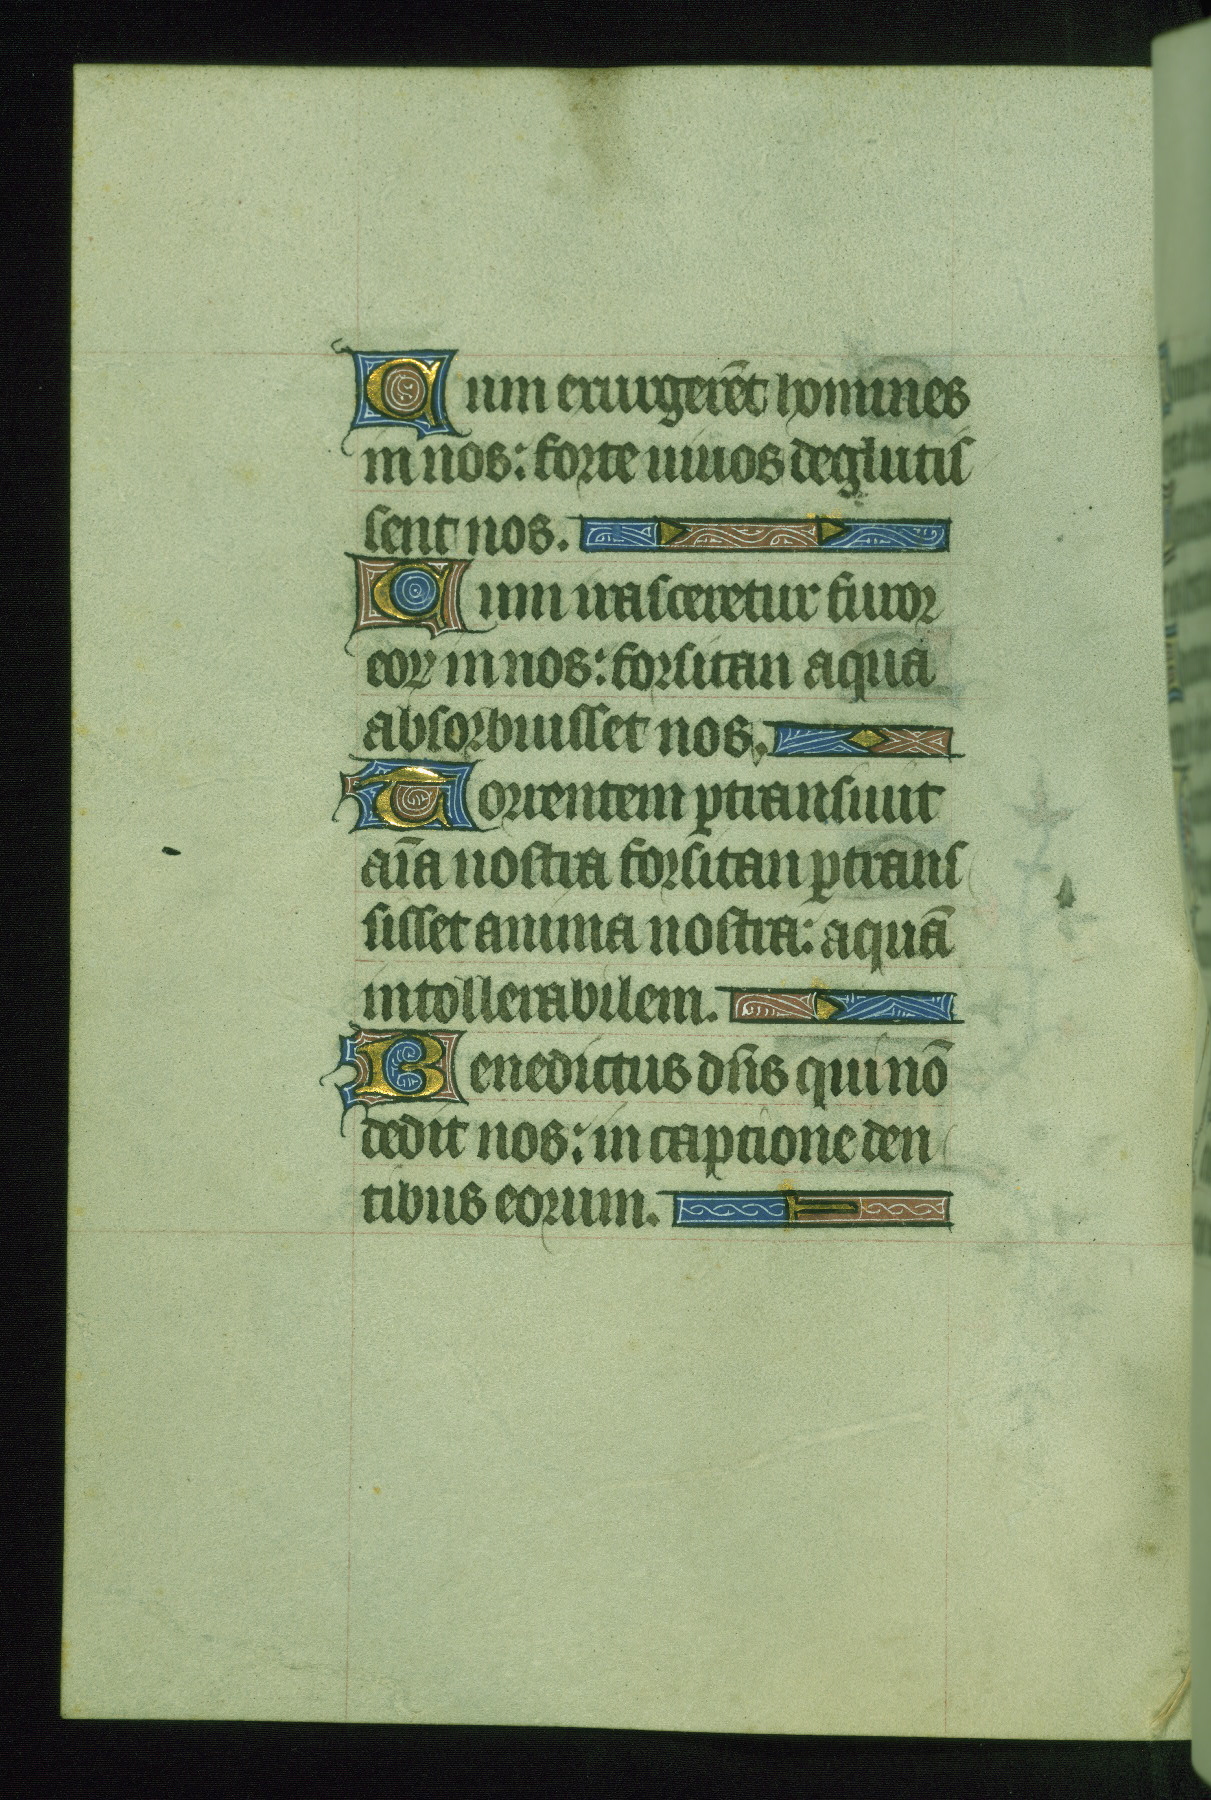 Cum exurgerēt homines
in nos: forte uiuos deglutis
sent nos.
Cum irasceretur furor
eoꝝ in nos: forsitan aqua
absorbuisset nos.
Torrentem ꝑtransiuit
aīa nostra forsitan ꝑtrans
sisset anima nostra: aquā
intollerabilem.
Benedictus dn̄s qui nō
dedit nos: in captione den
tibus eorum.